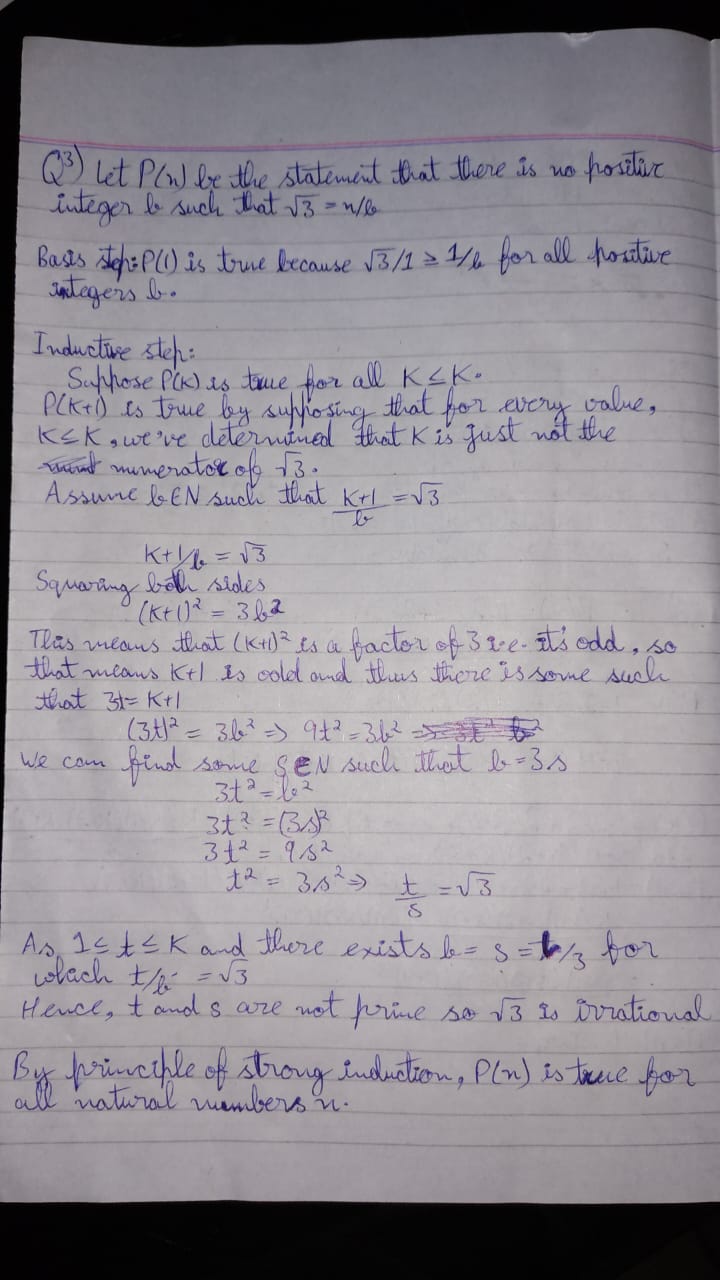 Q3) Let P(n) be the statement that there is no positive
integer b such that √3 = n/b
Basis step: P(1) is true because √3/1 ≥ 1/b for all positive
integers b.
Inductive step:
Suppose P(K) is true for all K ≤ K.
P(K+1) is true by supposing that for every value,
K ≤ K, we've determined that K is just not the
numerator of √3.
Assume b ∈ N such that K+1/b = √3
K+1/b = √3
Squaring both sides
(K+1)² = 3b²
This means that (K+1)² is a factor of 3 i.e. it's odd, so
that means K+1 is odd and thus there is some such
that 3t = K+1
(3t)² = 3b² => 9t² = 3b²
We can find some S ∈ N such that b = 3s
3t² = b²
3t² = (3s)²
3t² = 9s²
t² = 3s² => t/s = √3
As, 1 ≤ t ≤ K and there exists b = s = b/3 for
which t/b = √3
Hence, t and s are not prime so √3 is irrational
By principle of strong induction, P(n) is true for
all natural numbers n.